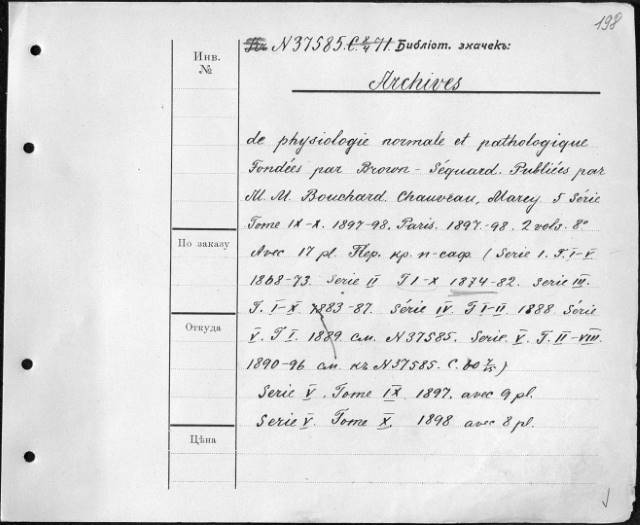 198
К N 37585. C. 2/4 71. Библіот. значекъ:
Инв.
№
Archives
de physiologie normale et pathologique
Fondées par Brown-Séquard. Publiées par
M. M. Bouchard. Chauveau, Marey 5 Série
Tome IX-X. 1897-98. Paris. 1897-98. 2 vols. 8°
По заказу
Avec 17 pl. Пер. кр. п-саф. (Serie 1. T. I-V.
1868-73. Serie II T I-X 1874-82. Serie III.
T. I-X 1883-87. Série IV. T I-II 1888. Série
Откуда
V. T I. 1889. см. N 37585. Serie. V. T. II-VIII.
1890-96 см. къ N 37585. C.
Serie V. Tome IX. 1897. avec 9 pl.
Serie V. Tome X. 1898 avec 8 pl.
Цѣна